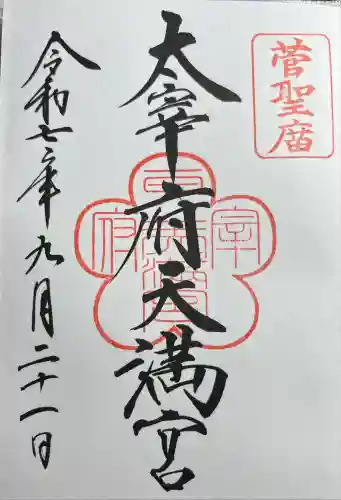 菅聖廟
太宰府天満宮
令和七年九月二十一日